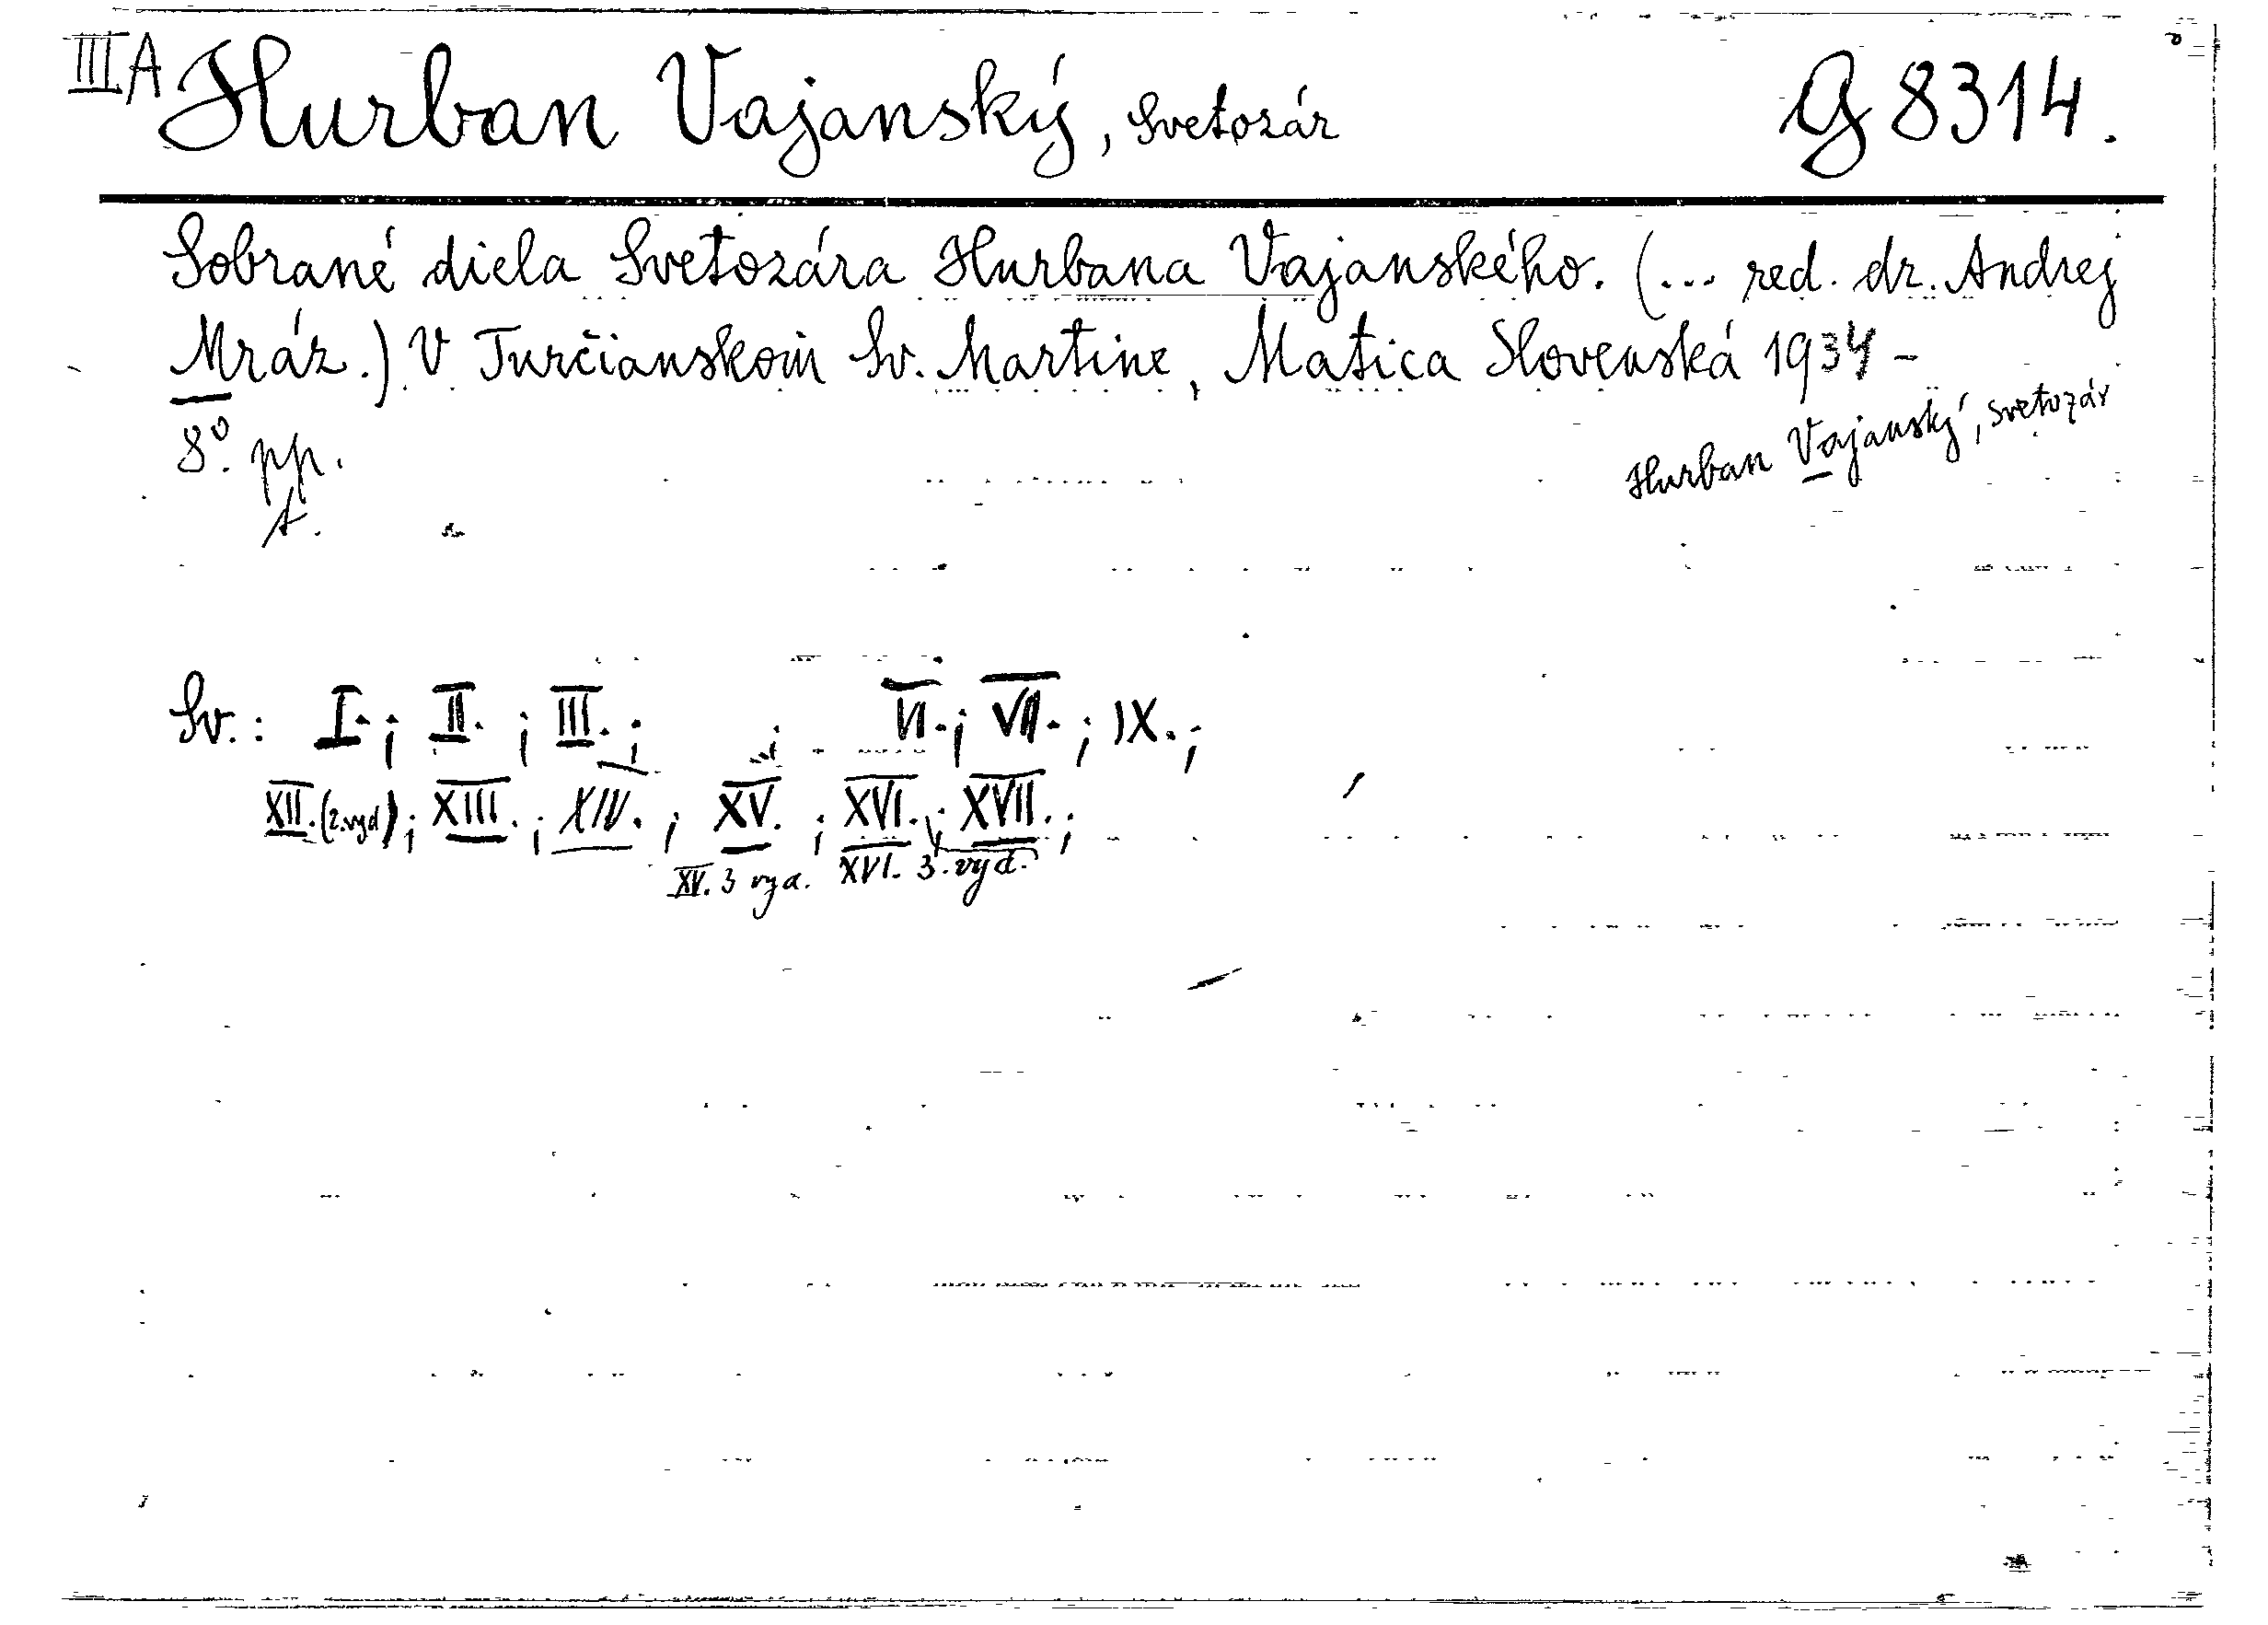 III A Hurban Vajanský, Svetozár G 8314.
Sobrané diela Svetozára Hurbana Vajanského. (... red. dr. Andrej
Mráz.) V Turčianskom Sv. Martine, Matica Slovenská 1934 -
8°. pp.
Hurban Vajanský, Svetozár
A.
Sv.: I.; II.; III.; ; VI.; VII.; IX.;
XII. (2. vyd); XIII.; XIV.; XV.; XVI.; XVII.;
XV. 3 vyd. XVI. 3. vyd.